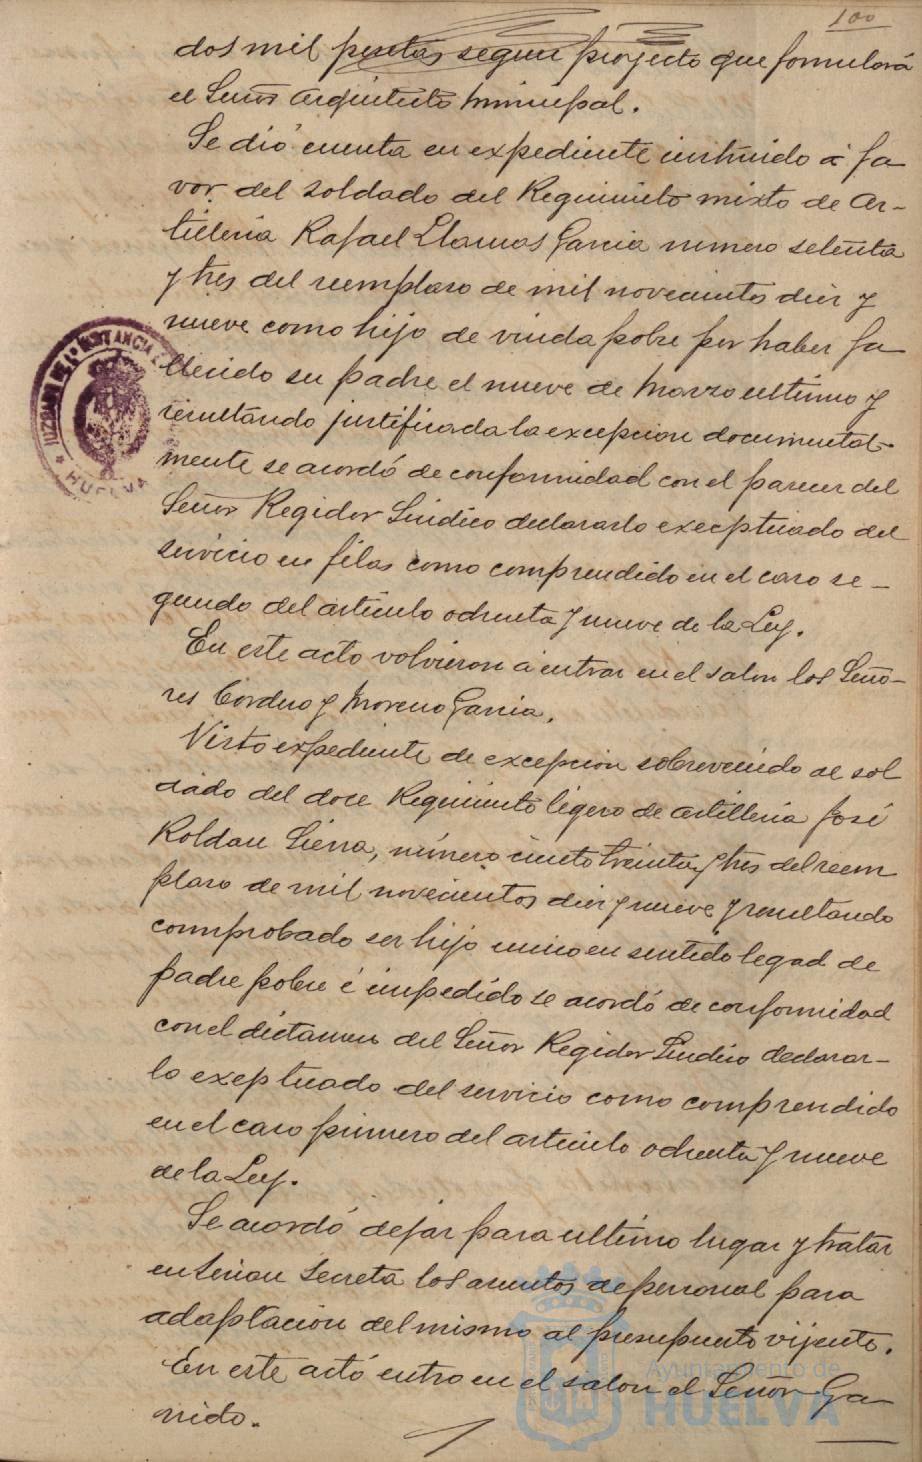 100
dos mil pesetas segun proyecto que formulará
el Señor Arquitecto Municipal.
Se dió cuenta en expediente instruido á fa
vor del soldado del Regimiento mixto de Ar-
tilleria Rafael Llamas Garcia número setenta
y tres del reemplazo de mil novecientos diez y
nueve como hijo de viuda pobre por haber fa
llecido su padre el nueve de Marzo ultimo y
resultando justificada la excepcion documental-
mente se acordó de conformidad con el parecer del
Señor Regidor Sindico declararlo exceptuado del
servicio en filas como comprendido en el caso se-
gundo del articulo ochenta y nueve de la Ley.
En este acto volvieron á entrar en el salon los Seño-
res Cordero y Moreno Garcia.
Visto expediente de excepcion sobrevenido al sol
dado del doce Regimiento ligero de artilleria José
Roldan Sierra, número ciento treinta y tres del reem
plazo de mil novecientos diez y nueve y resultando
comprobado ser hijo unico en sentido legal de
padre pobre é impedido se acordó de conformidad
con el dictamen del Señor Regidor Sindico declarar-
lo exeptuado del servicio como comprendido
en el caso primero del articulo ochenta y nueve
de la Ley.
Se acordó dejar para ultimo lugar y tratar
en sesion secreta los asuntos de personal para
adaptacion del mismo al presupuesto vijente.
En este actó entro en el salon el Señor Ga
rrido.
JUZGADO DE 1ª INSTANCIA
HUELVA
Ayuntamiento de
HUELVA